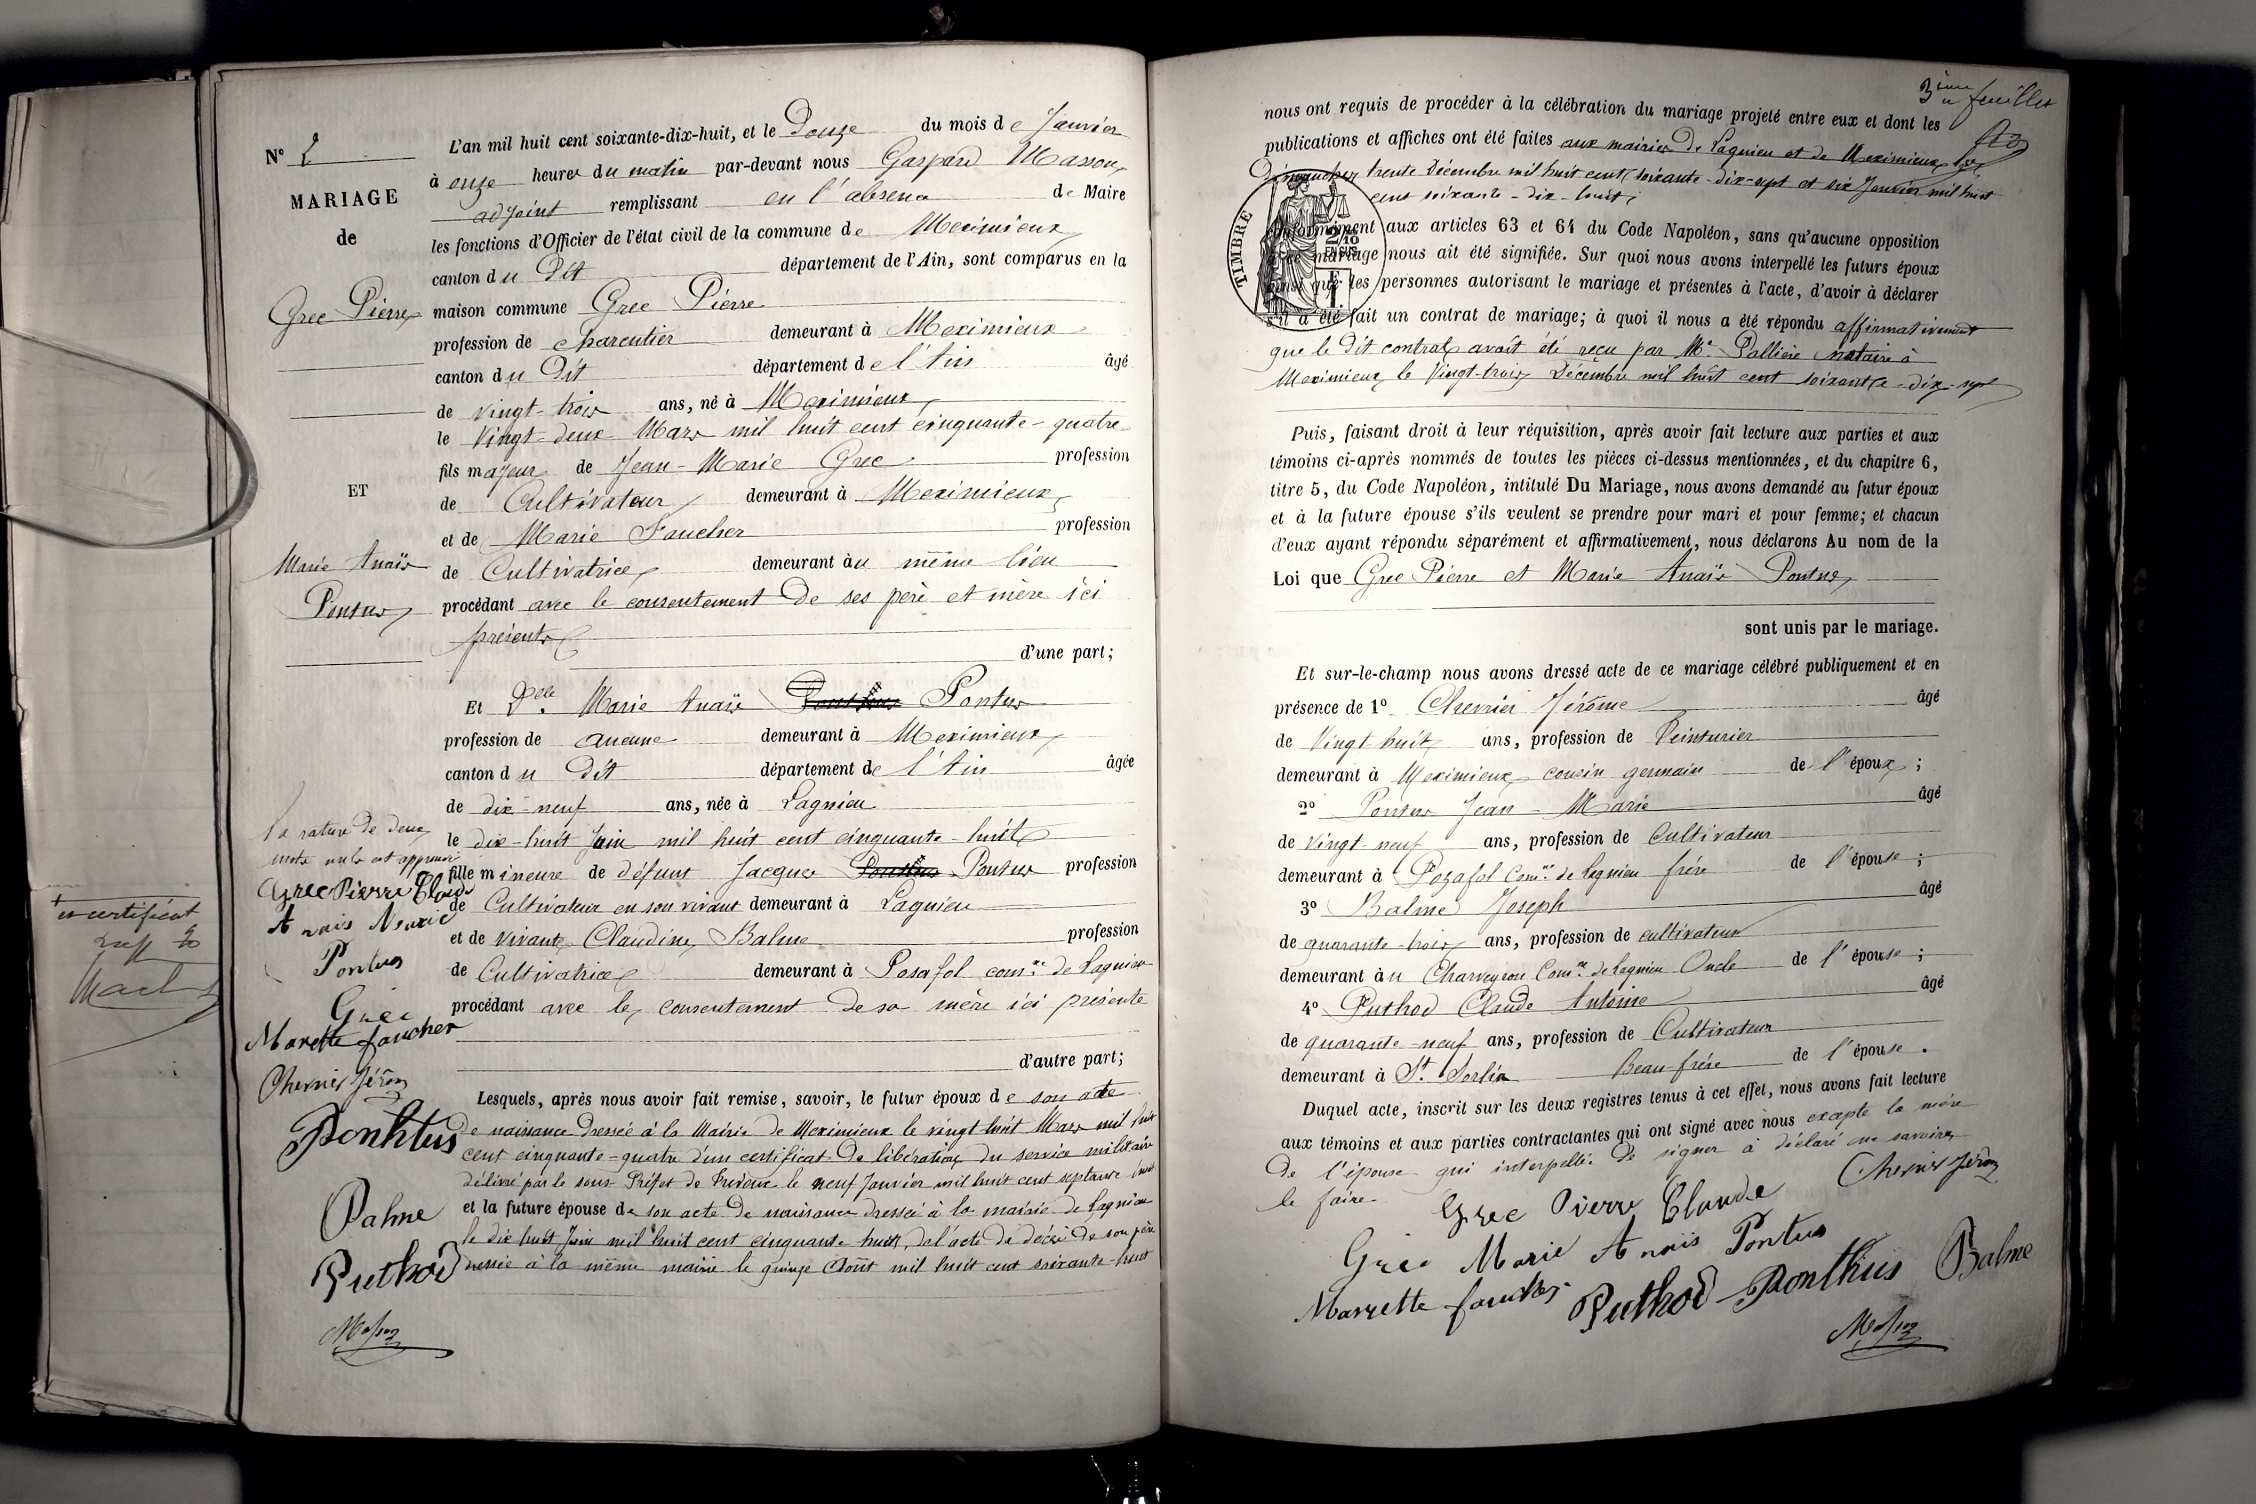 N° 2
MARIAGE
de
Grec Pierre
ET
Marie Anaïs
Pontus
L'an mil huit cent soixante-dix-huit, et le Douze du mois de Janvier
à onze heures du matin par-devant nous Gaspard Masson,
adjoint remplissant en l'absence de Maire
les fonctions d'Officier de l'état civil de la commune de Meximieux
canton du Dit département de l'Ain, sont comparus en la
maison commune Grec Pierre
profession de charcutier demeurant à Meximieux
canton du Dit département de l'Ain âgé
de vingt-trois ans, né à Meximieux,
le Vingt-deux Mars mil huit cent cinquante-quatre
fils majeur de Jean-Marie Grec profession
de Cultivateur demeurant à Meximieux,
et de Marie Faucher profession
de Cultivatrice demeurant au même lieu
procédant avec le consentement de ses père et mère ici
présents
d'une part;
Et Dlle Marie Anaïs Pontus
profession de aucune demeurant à Meximieux
canton du Dit département de l'Ain âgée
de dix-neuf ans, née à Lagnieu
le dix-huit Juin mil huit cent cinquante-huit
fille mineure de défunt Jacques Pontus profession
de Cultivateur en son vivant demeurant à Lagnieu
et de vivante Claudine Balme profession
de Cultivatrice demeurant à Posafol comne de Lagnieu
procédant avec le consentement de sa mère ici présente
d'autre part;
Lesquels, après nous avoir fait remise, savoir, le futur époux de son acte
de naissance dressée à la Mairie de Meximieux le vingt huit Mars mil huit
cent cinquante-quatre d'un certificat de libération du service militaire
délivré par le sous-Préfet de Trévoux le neuf Janvier mil huit cent septante huit
et la future épouse de son acte de naissance dressée à la mairie de Lagnieu
le dix huit Juin mil huit cent cinquante huit, de l'acte de décès de son père
dressée à la même mairie le quinze Août mil huit cent soixante-huit
la rature de deux
mots nuls est approuvé
Grec Pierre Claude
Anais Marie
Pontus
Grec
Marette faucher
Chevrier Jérôme
Ponhtus
Balme
Puthod
Masson
un certificat
3ième feuillet
nous ont requis de procéder à la célébration du mariage projeté entre eux et dont les
publications et affiches ont été faites aux mairies de Lagnieu et de Meximieux les
Dimanches trente Décembre mil huit cent soixante-dix-sept et six Janvier mil huit
cent soixante-dix-huit,
conformément aux articles 63 et 64 du Code Napoléon, sans qu'aucune opposition
à ce mariage nous ait été signifiée. Sur quoi nous avons interpellé les futurs époux
ainsi que les personnes autorisant le mariage et présentes à l'acte, d'avoir à déclarer
s'il a été fait un contrat de mariage; à quoi il nous a été répondu affirmativement
que le dit contrat avait été reçu par Me Pallière notaire à
Meximieux le Vingt-trois Décembre mil huit cent soixante-dix-sept
TIMBRE
2/10
EN SUS
Puis, faisant droit à leur réquisition, après avoir fait lecture aux parties et aux
témoins ci-après nommés de toutes les pièces ci-dessus mentionnées, et du chapitre 6,
titre 5, du Code Napoléon, intitulé Du Mariage, nous avons demandé au futur époux
et à la future épouse s'ils veulent se prendre pour mari et pour femme; et chacun
d'eux ayant répondu séparément et affirmativement, nous déclarons Au nom de la
Loi que Grec Pierre et Marie Anaïs Pontus
sont unis par le mariage.
Et sur-le-champ nous avons dressé acte de ce mariage célébré publiquement et en
présence de 1° Chevrier Jérôme âgé
de Vingt huit ans, profession de Teinturier
demeurant à Meximieux cousin germain de l'époux;
2° Pontus Jean-Marie âgé
de vingt-neuf ans, profession de Cultivateur
demeurant à Pozafol Comne de Lagnieu frère de l'épouse;
3° Balme Joseph âgé
de quarante-trois ans, profession de cultivateur
demeurant au Charveyron Comne de Lagnieu Oncle de l'épouse;
4° Puthod Claude Antoine âgé
de quarante-neuf ans, profession de Cultivateur
demeurant à St Sorlin Beau-frère de l'épouse.
Duquel acte, inscrit sur les deux registres tenus à cet effet, nous avons fait lecture
aux témoins et aux parties contractantes qui ont signé avec nous excepté la mère
de l'épouse qui interpellée de signer à déclaré ne savoir
le faire.
Grec Pierre Claude
Chevrier Jérôme
Grec Marie Anaïs Pontus
Marrette faucher Puthod Ponthus Balme
Masson